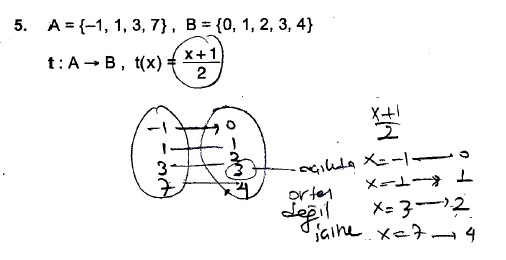 5. A = {–1, 1, 3, 7} , B = {0, 1, 2, 3, 4}
t : A → B , t(x) = x+1 / 2
x+1 / 2
-1 → 0
1 — 1
3 — 2
3 — açıkta
7 → 4
örten değil
x=-1 — 0
x=1 → 1
x=3 → 2
x=7 → 4